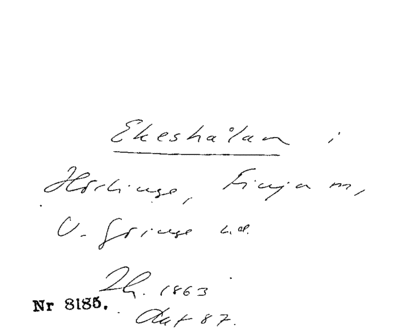 Ekeshålan i
Hörlinge, Finja m,
V. Göinge h.d.
Th. 1863
Nr 8185.
Dat 87.